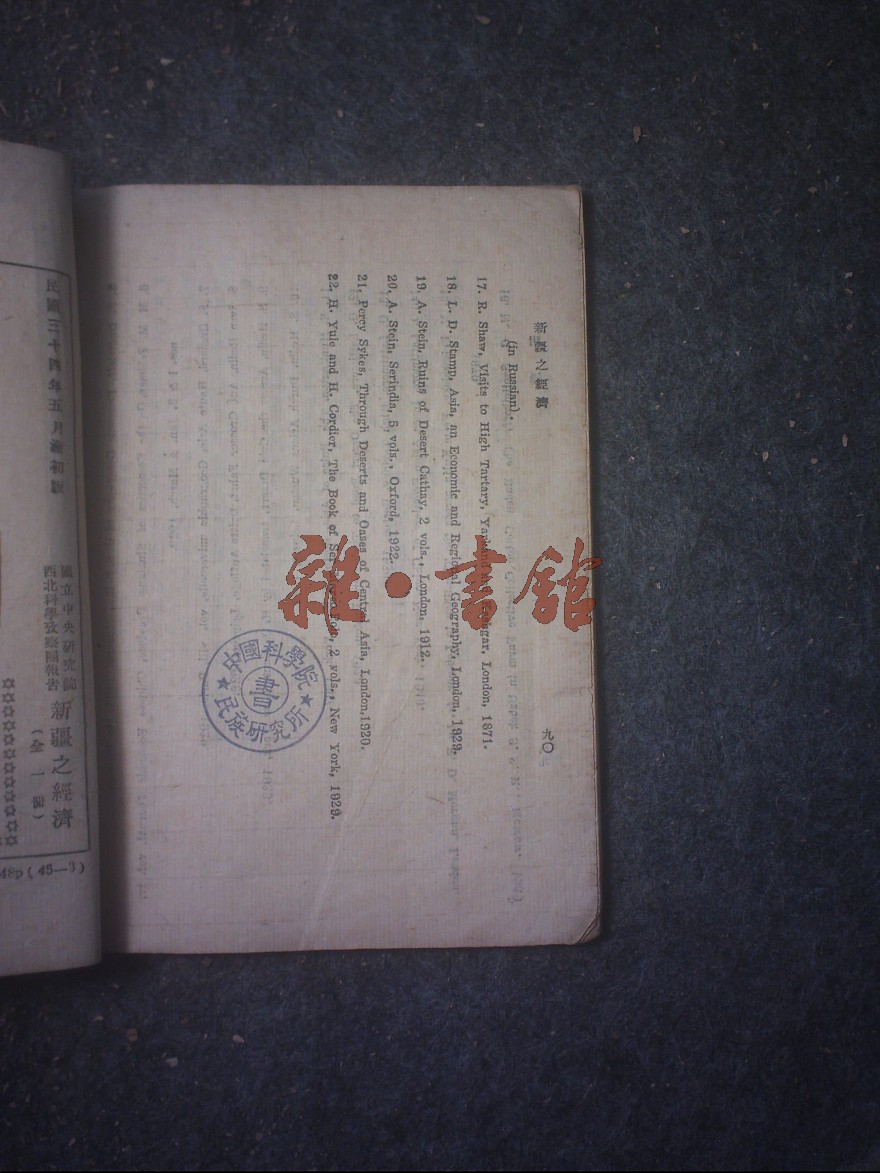 新疆之經濟
九〇
(in Russian).
17. R. Shaw, Visits to High Tartary, Yarkand and Kashgar, London, 1871.
18. L. D. Stamp, Asia, an Economic and Regional Geography, London, 1929.
19. A. Stein, Ruins of Desert Cathay, 2 vols., London, 1912.
20. A. Stein, Serindia, 5 vols., Oxford, 1922.
21. Percy Sykes, Through Deserts and Oases of Central Asia, London, 1920.
22. H. Yule and H. Cordier, The Book of Ser Marco Polo, 2 vols., New York, 1929.
中國科學院
書
民族研究所
雜·書館
國立中央研究院
西北科學攷察團報告
新疆之經濟
(全一冊)
民國三十四年五月渝初版
48p(45—3)